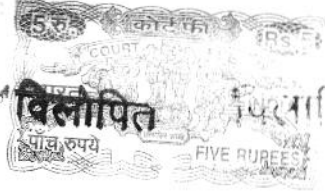 5 रु. कोर्ट फी RS. 5
COURT
भारत
विलोपित
पाँच रुपये FIVE RUPEES